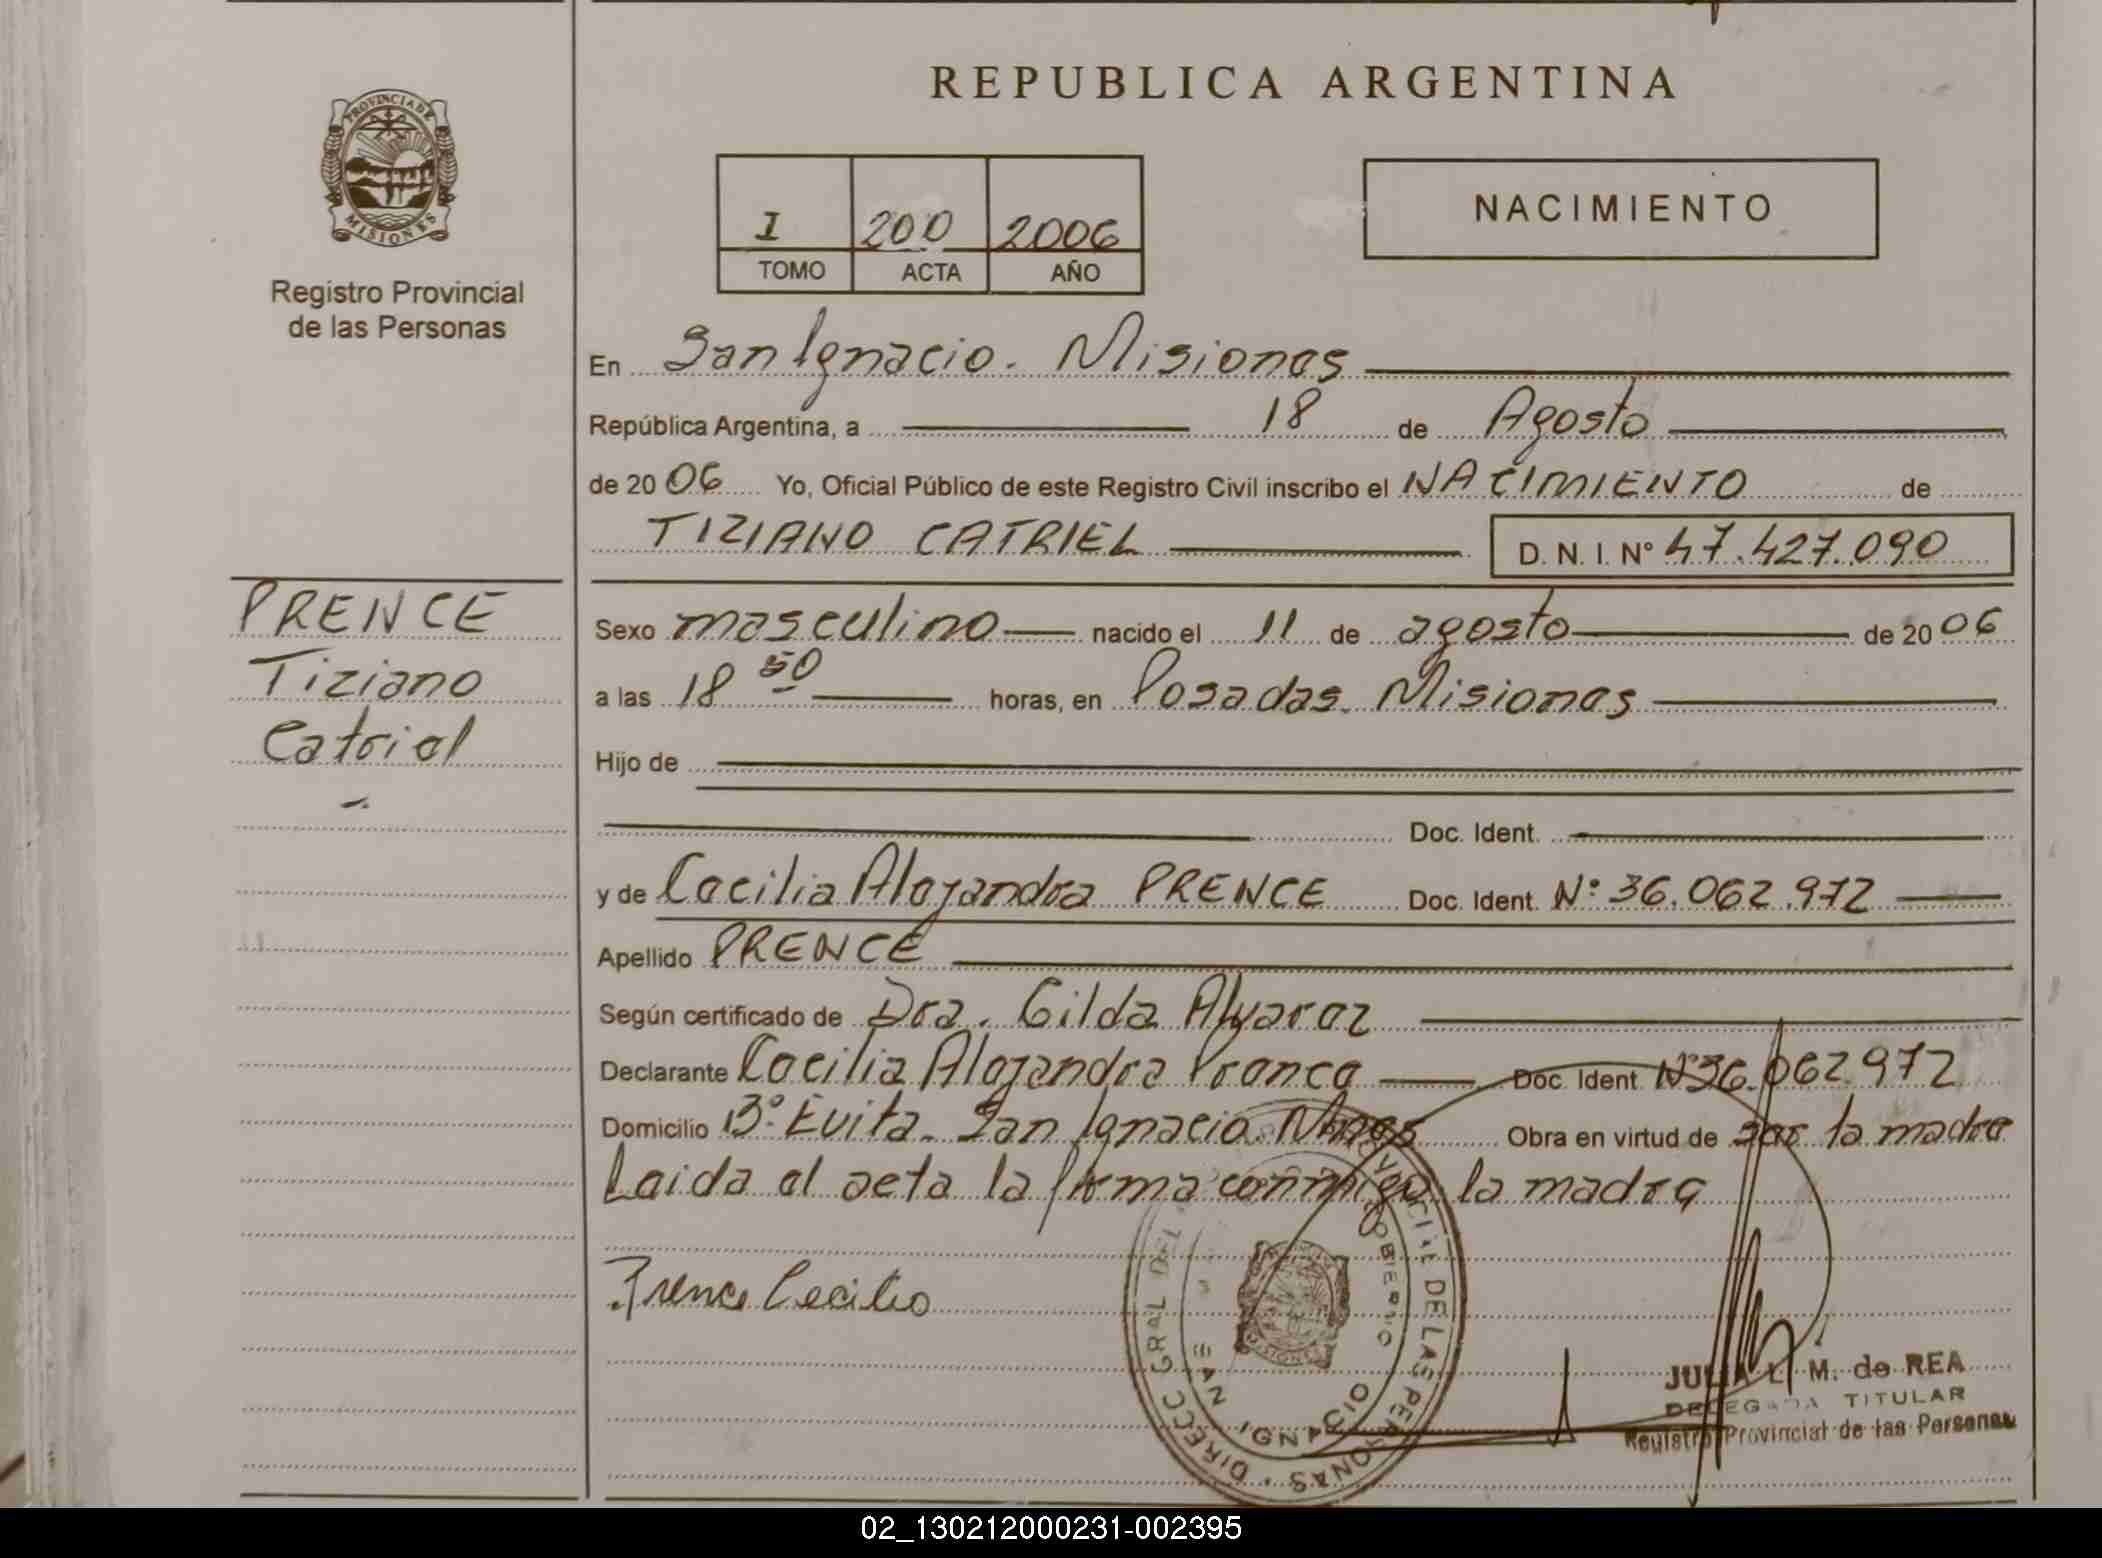 REPUBLICA ARGENTINA
PROVINCIA DE
MISIONES
Registro Provincial
de las Personas
I 200 2006
TOMO ACTA AÑO
NACIMIENTO
En San Ignacio. Misiones
República Argentina, a 18 de Agosto
de 2006 Yo, Oficial Público de este Registro Civil inscribo el NACIMIENTO de
TIZIANO CATRIEL D. N. I. N° 47.427.090
PRENCE
Tiziano
Catriel
Sexo masculino nacido el 11 de agosto de 2006
a las 18 50 horas, en Posadas. Misiones
Hijo de
Doc. Ident.
y de Cecilia Alejandra PRENCE Doc. Ident. N° 36.062.972
Apellido PRENCE
Según certificado de Dra. Gilda Alvarez
Declarante Cecilia Alejandra Prence Doc. Ident. N° 36.062.972
Domicilio B° Evita. San Ignacio. Mnes Obra en virtud de ser la madre
Leida el acta la firma conmigo la madre
Prence Cecilia
DIRECC GRAL DEL PROVINCIAL DE LAS PERSONAS
GOBIERNO
SAN IGNACIO
JULIA L. M. de REA
DELEGADA TITULAR
Registro Provincial de las Personas
02_130212000231-002395